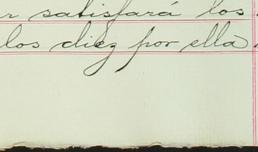 r satisfará los
los diez por ella